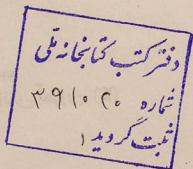 دفتر کتب کتابخانه ملی
شماره ۳۹۱۰۲۰
ثبت گردید ۱